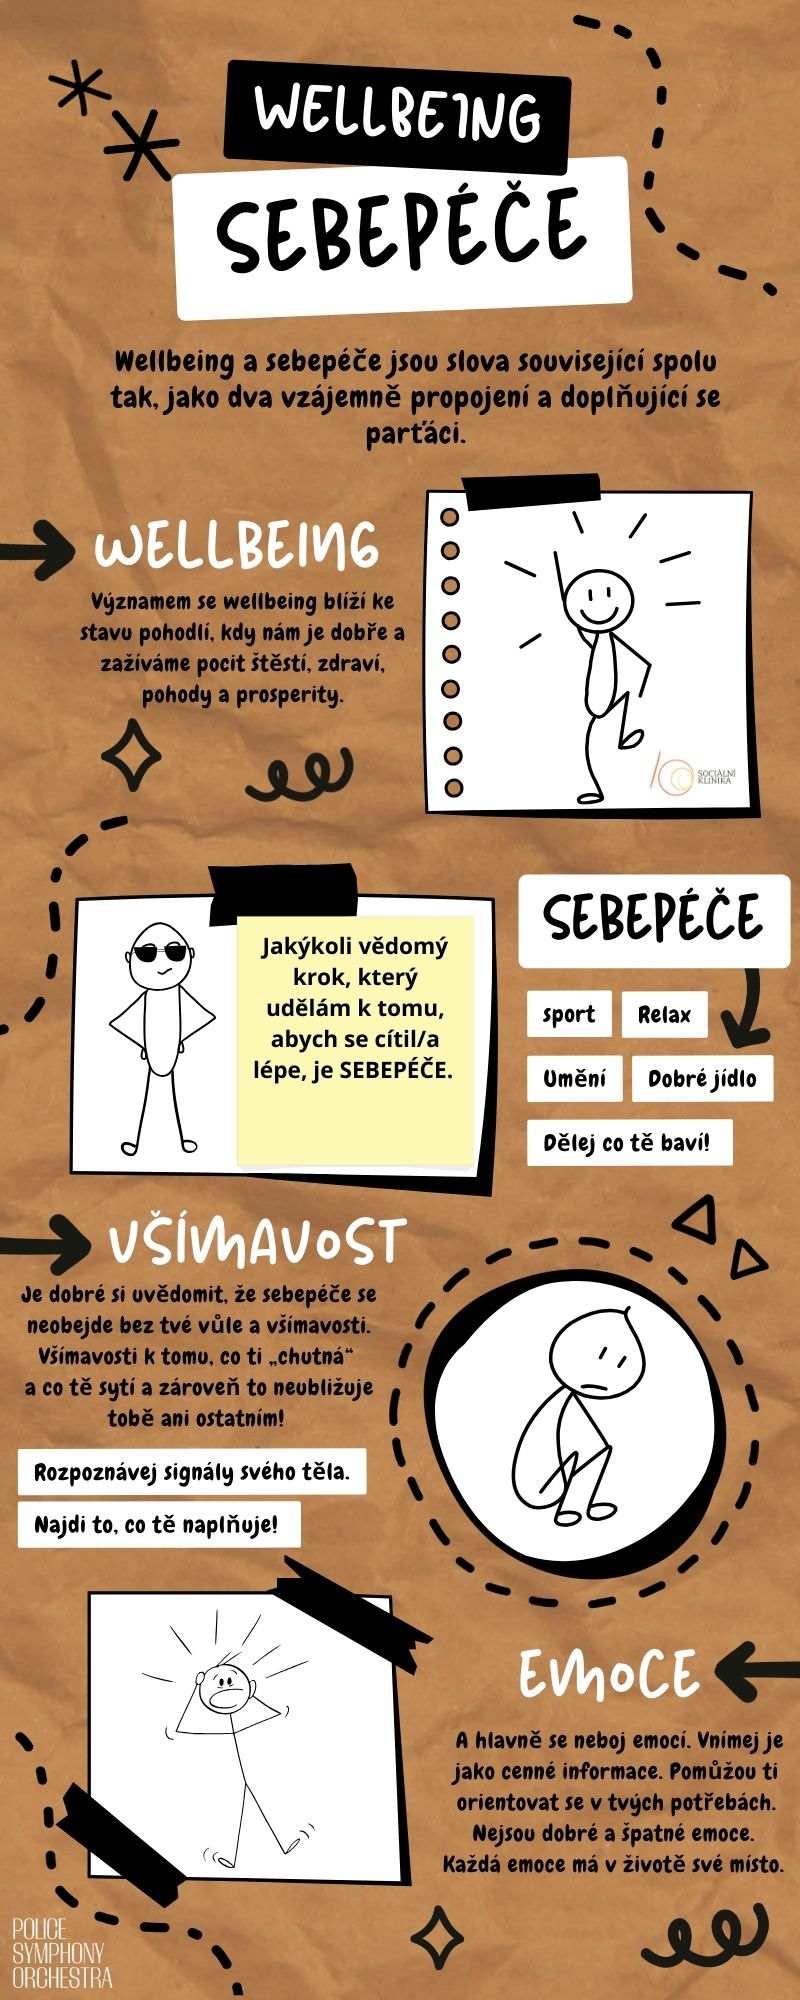 WELLBEING
SEBEPÉČE
Wellbeing a sebepéče jsou slova související spolu
tak, jako dva vzájemně propojení a doplňující se
parťáci.
WELLBEING
Významem se wellbeing blíží ke
stavu pohodlí, kdy nám je dobře a
zažíváme pocit štěstí, zdraví,
pohody a prosperity.
SOCIÁLNÍ
KLINIKA
Jakýkoli vědomý
krok, který
udělám k tomu,
abych se cítil/a
lépe, je SEBEPÉČE.
SEBEPÉČE
sport
Relax
Umění
Dobré jídlo
Dělej co tě baví!
VŠÍMAVOST
Je dobré si uvědomit, že sebepéče se
neobejde bez tvé vůle a všímavosti.
Všímavosti k tomu, co ti „chutná“
a co tě sytí a zároveň to neubližuje
tobě ani ostatním!
Rozpoznávej signály svého těla.
Najdi to, co tě naplňuje!
EMOCE
A hlavně se neboj emocí. Vnímej je
jako cenné informace. Pomůžou ti
orientovat se v tvých potřebách.
Nejsou dobré a špatné emoce.
Každá emoce má v životě své místo.
POLICE
SYMPHONY
ORCHESTRA